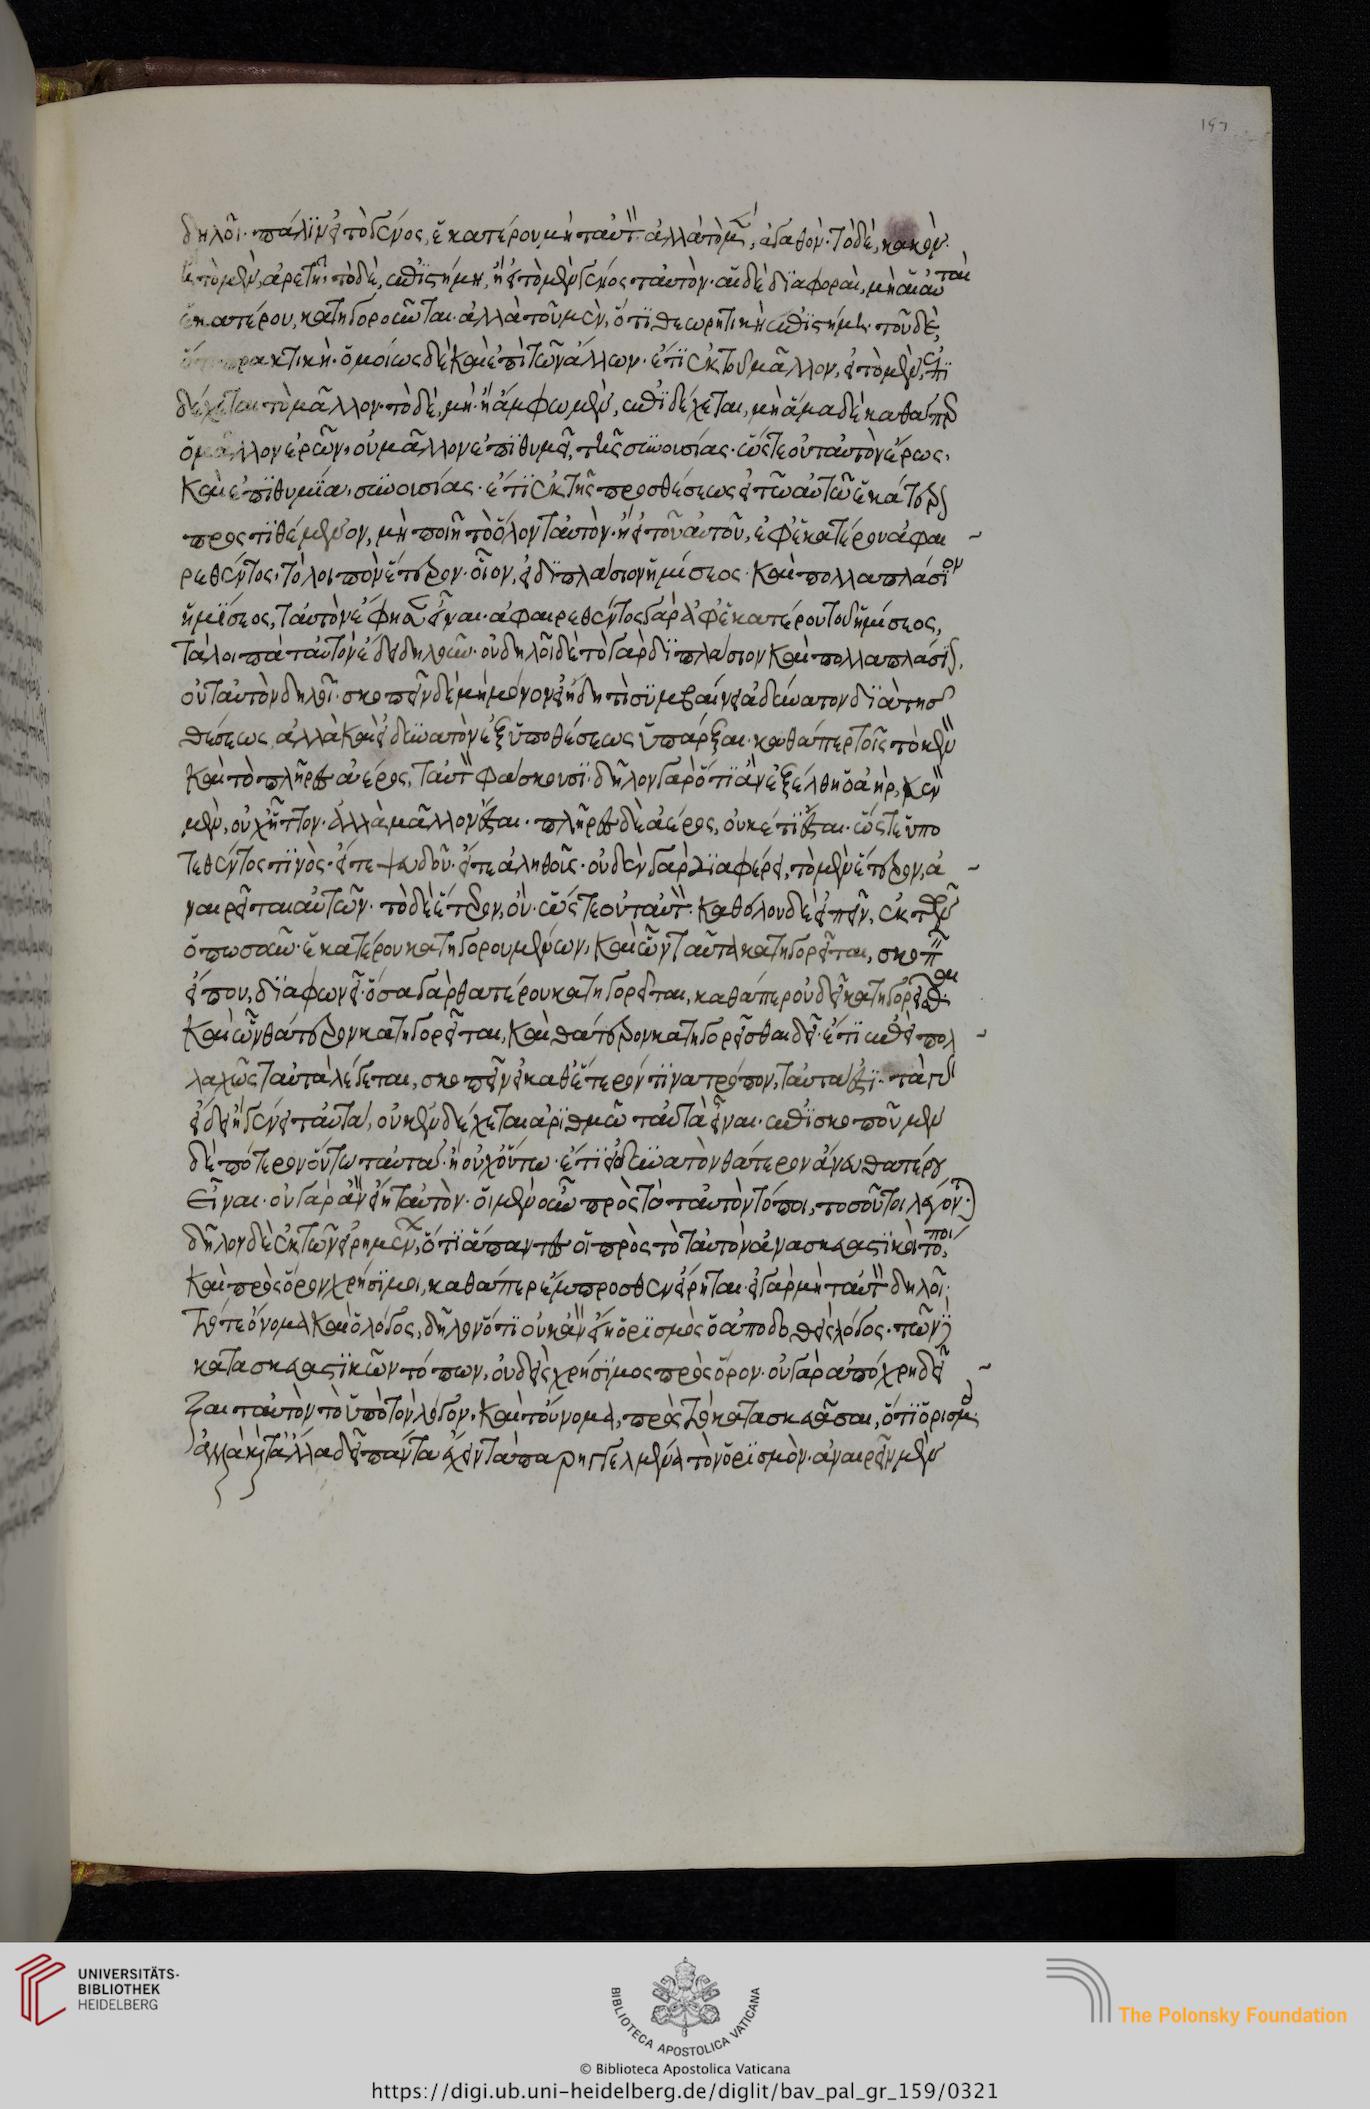 δηλοῖ· πάλιν εἰ τὸ γένος, ἑκατέρου μὴ ταὐτὸν ἀλλὰ τὸ μὲν, ἀγαθόν· τὸ δὲ, κακόν·
ἢ τὸ μὲν, ἀρετὴ· τὸ δὲ, ἐπιστήμη, ἢ εἰ τὸ μὲν γένος ταὐτὸν· αἱ δὲ διαφοραὶ, μὴ αἱ αὐταὶ
ἑκατέρου, κατηγοροῦνται· ἀλλὰ τοῦ μὲν, ὅτι θεωρητικὴ ἐπιστήμη· τοῦ δὲ,
ὅτι πρακτικὴ· ὁμοίως δὲ καὶ ἐπὶ τῶν ἄλλων· ἔτι ἐκ τοῦ μᾶλλον, εἰ τὸ μὲν, ἐπι
δέχεται τὸ μᾶλλον· τὸ δὲ, μή· ἢ ἄμφω μὲν, ἐπιδέχεται, μὴ ἅμα δὲ καθάπερ
ὁ μᾶλλον ἐρῶν, οὐ μᾶλλον ἐπιθυμεῖ, τῆς συνουσίας· ὥστε οὐ ταὐτὸν ἔρως,
καὶ ἐπιθυμία, συνουσίας· ἔτι ἐκ τῆς προσθέσεως εἰ τῶ αὐτῶ ἑκάτερον
προστιθέμενον, μὴ ποιῆ τὸ ὅλον ταὐτὸν· ἢ εἰ τοῦ αὐτοῦ, ἐφ' ἑκατέρου ἀφαι-
ρεθέντος, τὸ λοιπὸν ἕτερον· οἷον, εἰ διπλάσιον ἡμίσεος· καὶ πολλαπλάσιον
ἡμίσεος, ταὐτὸν ἔφησεν εἶναι· ἀφαιρεθέντος γὰρ ἀφ' ἑκατέρου τοῦ ἡμίσεος,
τὰ λοιπὰ ταὐτὸν ἔδει δηλοῦν· οὐ δηλοῖ δέ· τὸ γὰρ διπλάσιον καὶ πολλαπλάσιον,
οὐ ταὐτὸν δηλοῖ· σκοπεῖν δὲ μὴ μόνον εἰ ἤδη τὶ συμβαίνει ἀδύνατον διὰ τῆς
θέσεως, ἀλλὰ καὶ εἰ δυνατὸν ἐξ ὑποθέσεως ὑπάρξαι· καθάπερ τοῖς τὸ κενὸν
καὶ τὸ πλῆρες ἀέρος, ταὐτὸν φάσκουσι· δῆλον γὰρ ὅτι ἂν ἐξέλθη ὁ ἀὴρ, κενὸν
μὲν, οὐχ ἧττον· ἀλλὰ μᾶλλον ἔσται· πλῆρες δὲ ἀέρος, οὐκέτι ἔσται· ὥστε ὑπο
τεθέντος τινὸς· εἴτε ψευδοῦς· εἴτε ἀληθοῦς· οὐδὲν γὰρ διαφέρει, τὸ μὲν ἕτερον, ἀ-
ναιρεῖται αὐτῶν· τὸ δὲ ἕτερον, οὔ· ὥστε οὐ ταὐτὸν· καθόλου δὲ εἰπεῖν, ἐκ τῶν
ὁπωσοῦν· ἑκατέρου κατηγορουμένων, καὶ ὧν ταῦτα κατηγορεῖται, σκοπεῖν
εἴ που, διαφωνεῖ· ὅσα γὰρ θατέρου κατηγορεῖται, καθάπερ οὗ δεῖ κατηγορεῖσθαι
καὶ ὧν θάτερον κατηγορεῖται, καὶ θάτερον κατηγορεῖσθαι δεῖ· ἔτι ἐπεὶ πολ-
λαχῶς ταὐτὰ λέγεται, σκοπεῖν εἰ καθ' ἕτερόν τινα τρόπον, ταὐτά ἐστι· τὰ γὰρ
εἴδει ἢ γένει ταὐτά, οὐκ ἐνδέχεται ἀριθμῶ ταὐτὰ εἶναι· ἐπισκοποῦμεν
δὲ πότερον οὕτω ταὐτά· ἢ οὐχ οὕτω· ἔτι εἰ δυνατὸν θάτερον ἄνευ θατέρου
εἶναι· οὐ γὰρ ἂν εἴη ταὐτὸν· οἱ μὲν οὖν πρὸς τὸ ταὐτὸν τόποι, τοσοῦτοι λέγονται·
δῆλον δὲ ἐκ τῶν εἰρημένων, ὅτι ἅπαντες οἱ πρὸς τὸ ταὐτὸν ἀνασκευαστικοὶ τόποι,
καὶ πρὸς ὅρον χρήσιμοι, καθάπερ ἔμπροσθεν εἴρηται· εἰ γὰρ μὴ ταὐτὸν δηλοῖ·
τό τε ὄνομα καὶ ὁ λόγος, δῆλον ὅτι οὐκ ἂν εἴη ὁρισμὸς ὁ ἀποδοθεὶς λόγος· τῶν δὲ
κατασκευαστικῶν τόπων, οὐδεὶς χρήσιμος πρὸς ὅρον· οὐ γὰρ ἀπόχρη δεῖ-
ξαι ταὐτὸν τὸ ὑπὸ τὸν λόγον, καὶ τοὔνομα, πρὸς τὸ κατασκευάσαι, ὅτι ὁρισμός·
ἀλλὰ καὶ τἆλλα δεῖ πάντα ἔχειν τὰ παρηγγελμένα τὸν ὁρισμὸν· ἀναιρεῖν μὲν
197
UNIVERSITÄTS-
BIBLIOTHEK
HEIDELBERG
BIBLIOTECA APOSTOLICA VATICANA
The Polonsky Foundation
© Biblioteca Apostolica Vaticana
https://digi.ub.uni-heidelberg.de/diglit/bav_pal_gr_159/0321